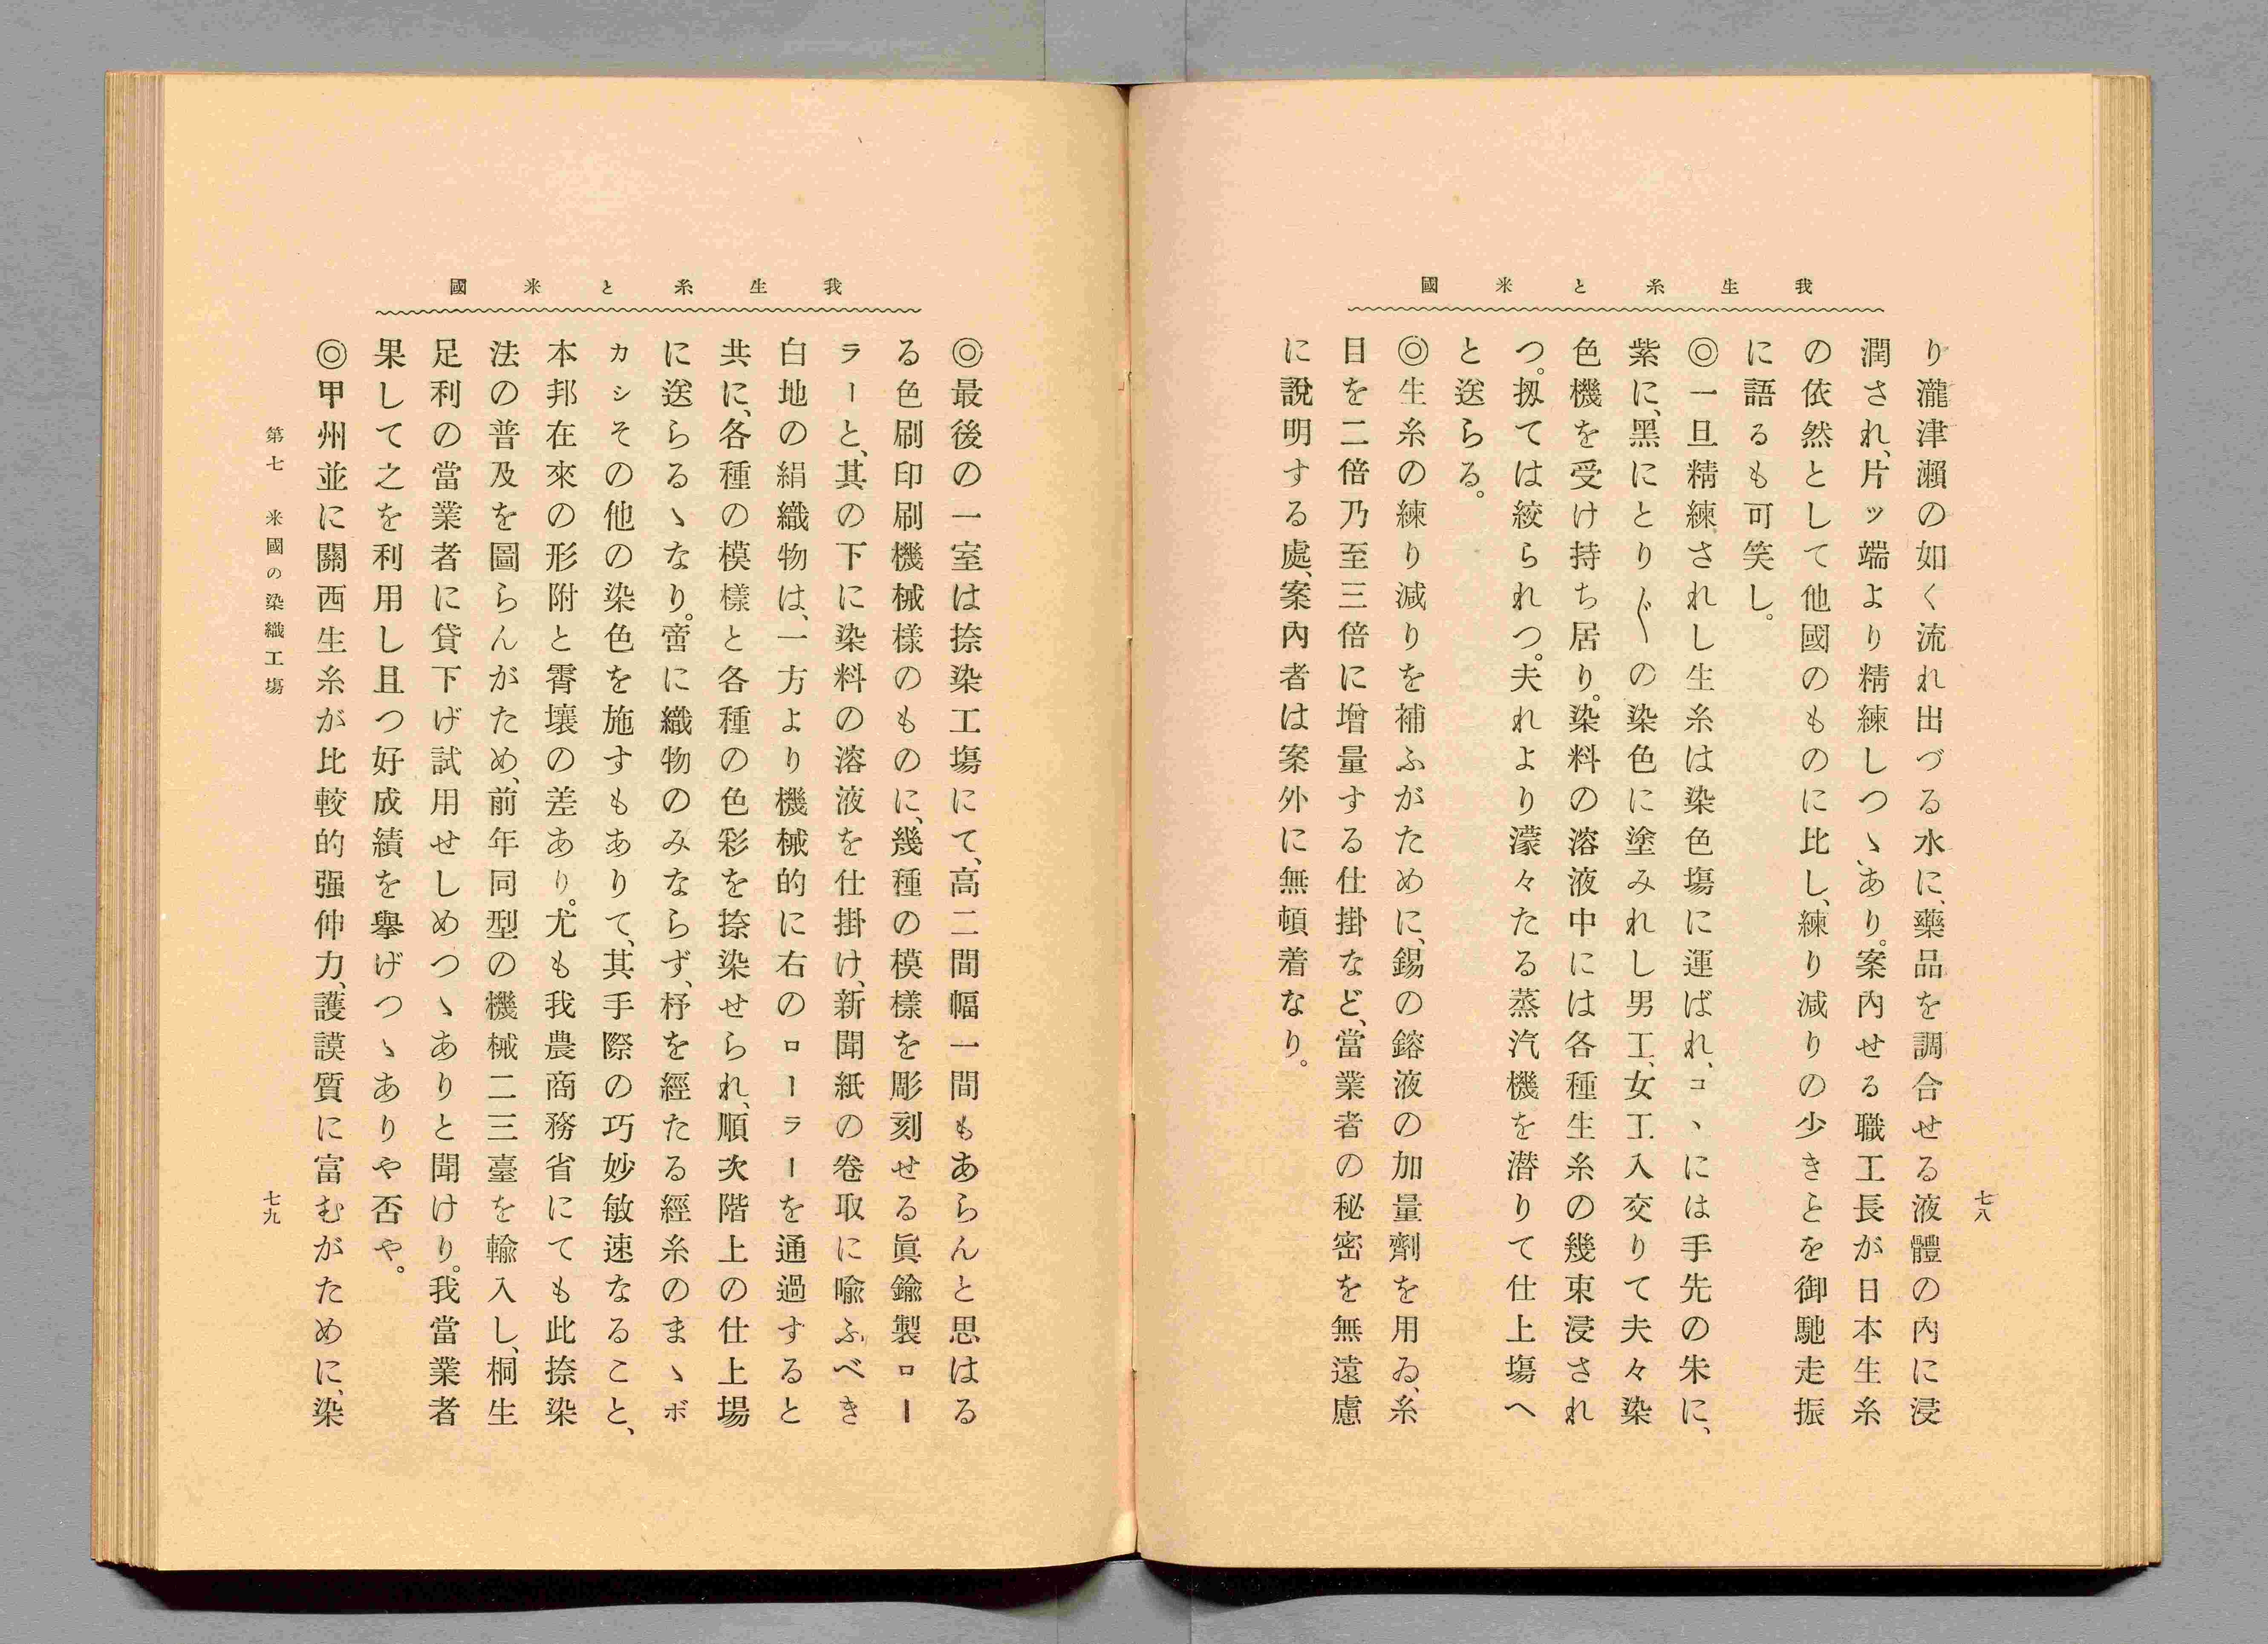 我生糸と米國
り瀧津瀨の如く流れ出づる水に、藥品を調合せる液體の內に浸
潤され、片ッ端より精練しつゝあり。案內せる職工長が日本生糸
の依然として他國のものに比し、練り減りの少きとを御馳走振
に語るも可笑し。
◎一旦精練されし生糸は染色場に運ばれ、コヽには手先の朱に、
紫に、黑にとり〴〵の染色に塗みれし男工、女工入交りて夫々染
色機を受け持ち居り。染料の溶液中には各種生糸の幾束浸され
つ。扨ては絞られつ。夫れより濛々たる蒸汽機を潜りて仕上場へ
と送らる。
◎生糸の練り減りを補ふがために、錫の鎔液の加量劑を用ゐ、糸
目を二倍乃至三倍に增量する仕掛など、當業者の秘密を無遠慮
に說明する處、案內者は案外に無頓着なり。
七八
我生糸と米國
◎最後の一室は捺染工塲にて、高二間幅一間もあらんと思はる
る色刷印刷機械樣のものに、幾種の模樣を彫刻せる眞鍮製ロー
ラーと、其の下に染料の溶液を仕掛け、新聞紙の卷取に喩ふべき
白地の絹織物は、一方より機械的に右のローラーを通過すると
共に、各種の模樣と各種の色彩を捺染せられ、順次階上の仕上場
に送らるゝなり。啻に織物のみならず、杼を經たる經糸のまゝボ
カシその他の染色を施すもありて、其手際の巧妙敏速なること、
本邦在來の形附と霄壤の差あり。尤も我農商務省にても此捺染
法の普及を圖らんがため、前年同型の機械二三臺を輸入し、桐生
足利の當業者に貸下げ試用せしめつゝありと聞けり。我當業者
果して之を利用し且つ好成績を擧げつゝありや否や。
◎甲州並に關西生糸が比較的强伸力、護謨質に富むがために、染
第七　米國の染織工塲
七九